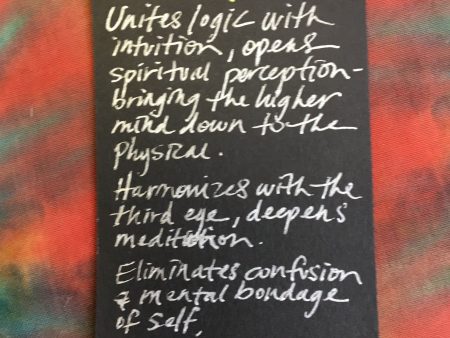 Unites logic with
intuition, opens
spiritual perception-
bringing the higher
mind down to the
physical.
Harmonizes with the
third eye, deepens
meditation.
Eliminates confusion
& mental bondage
of Self.